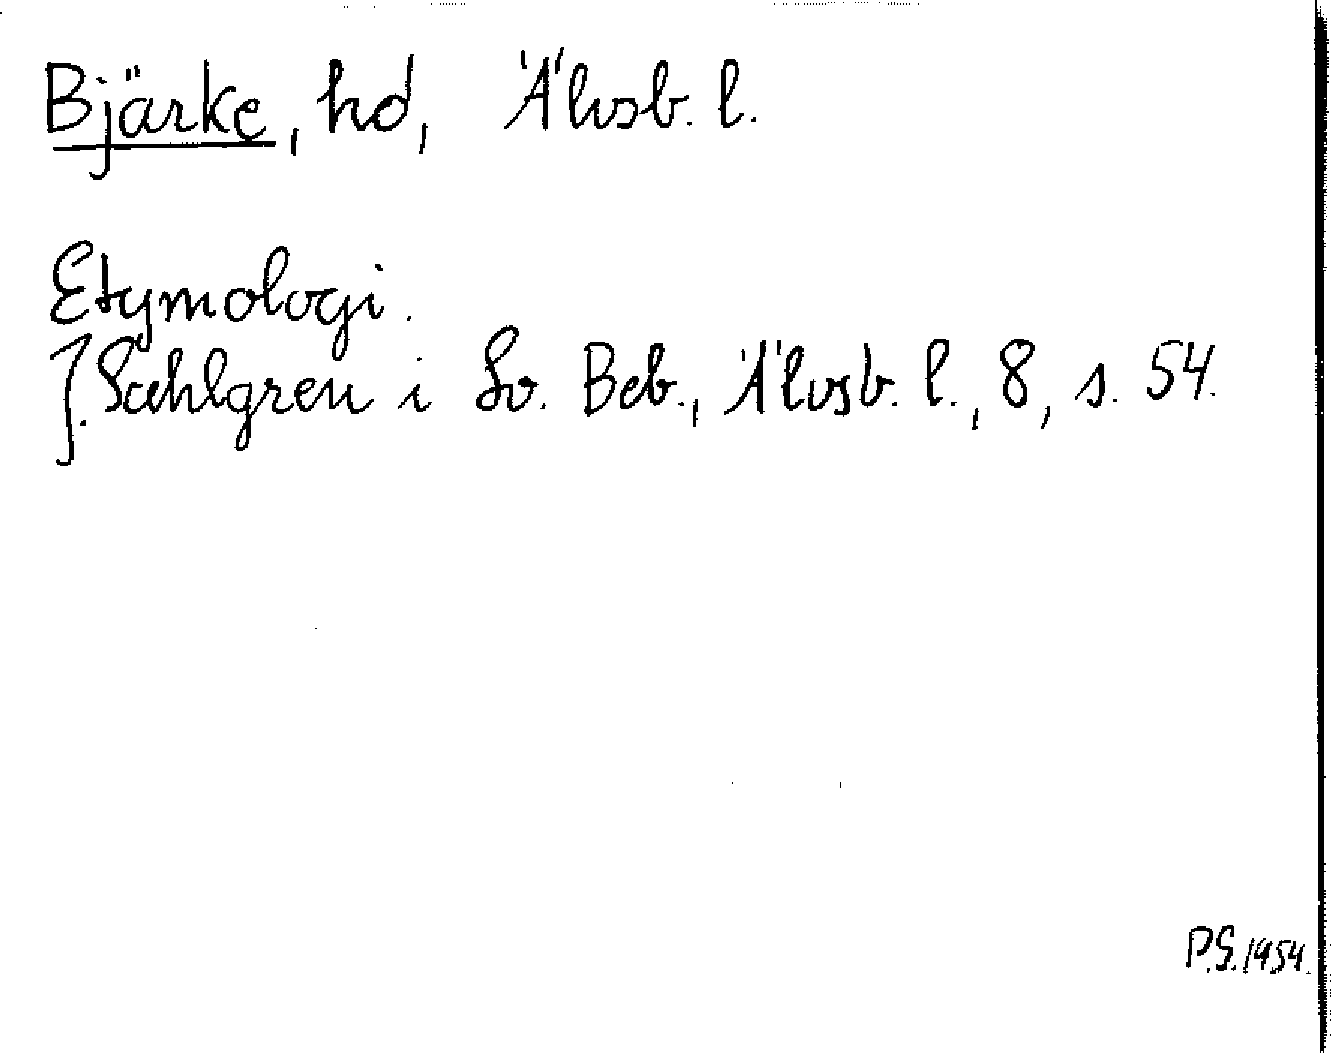 Bjärke, hd, Älvsb. l.
Etymologi.
J. Sahlgren i Sv. Beb., Älvsb. l., 8, s. 54.
P.S. 1954.